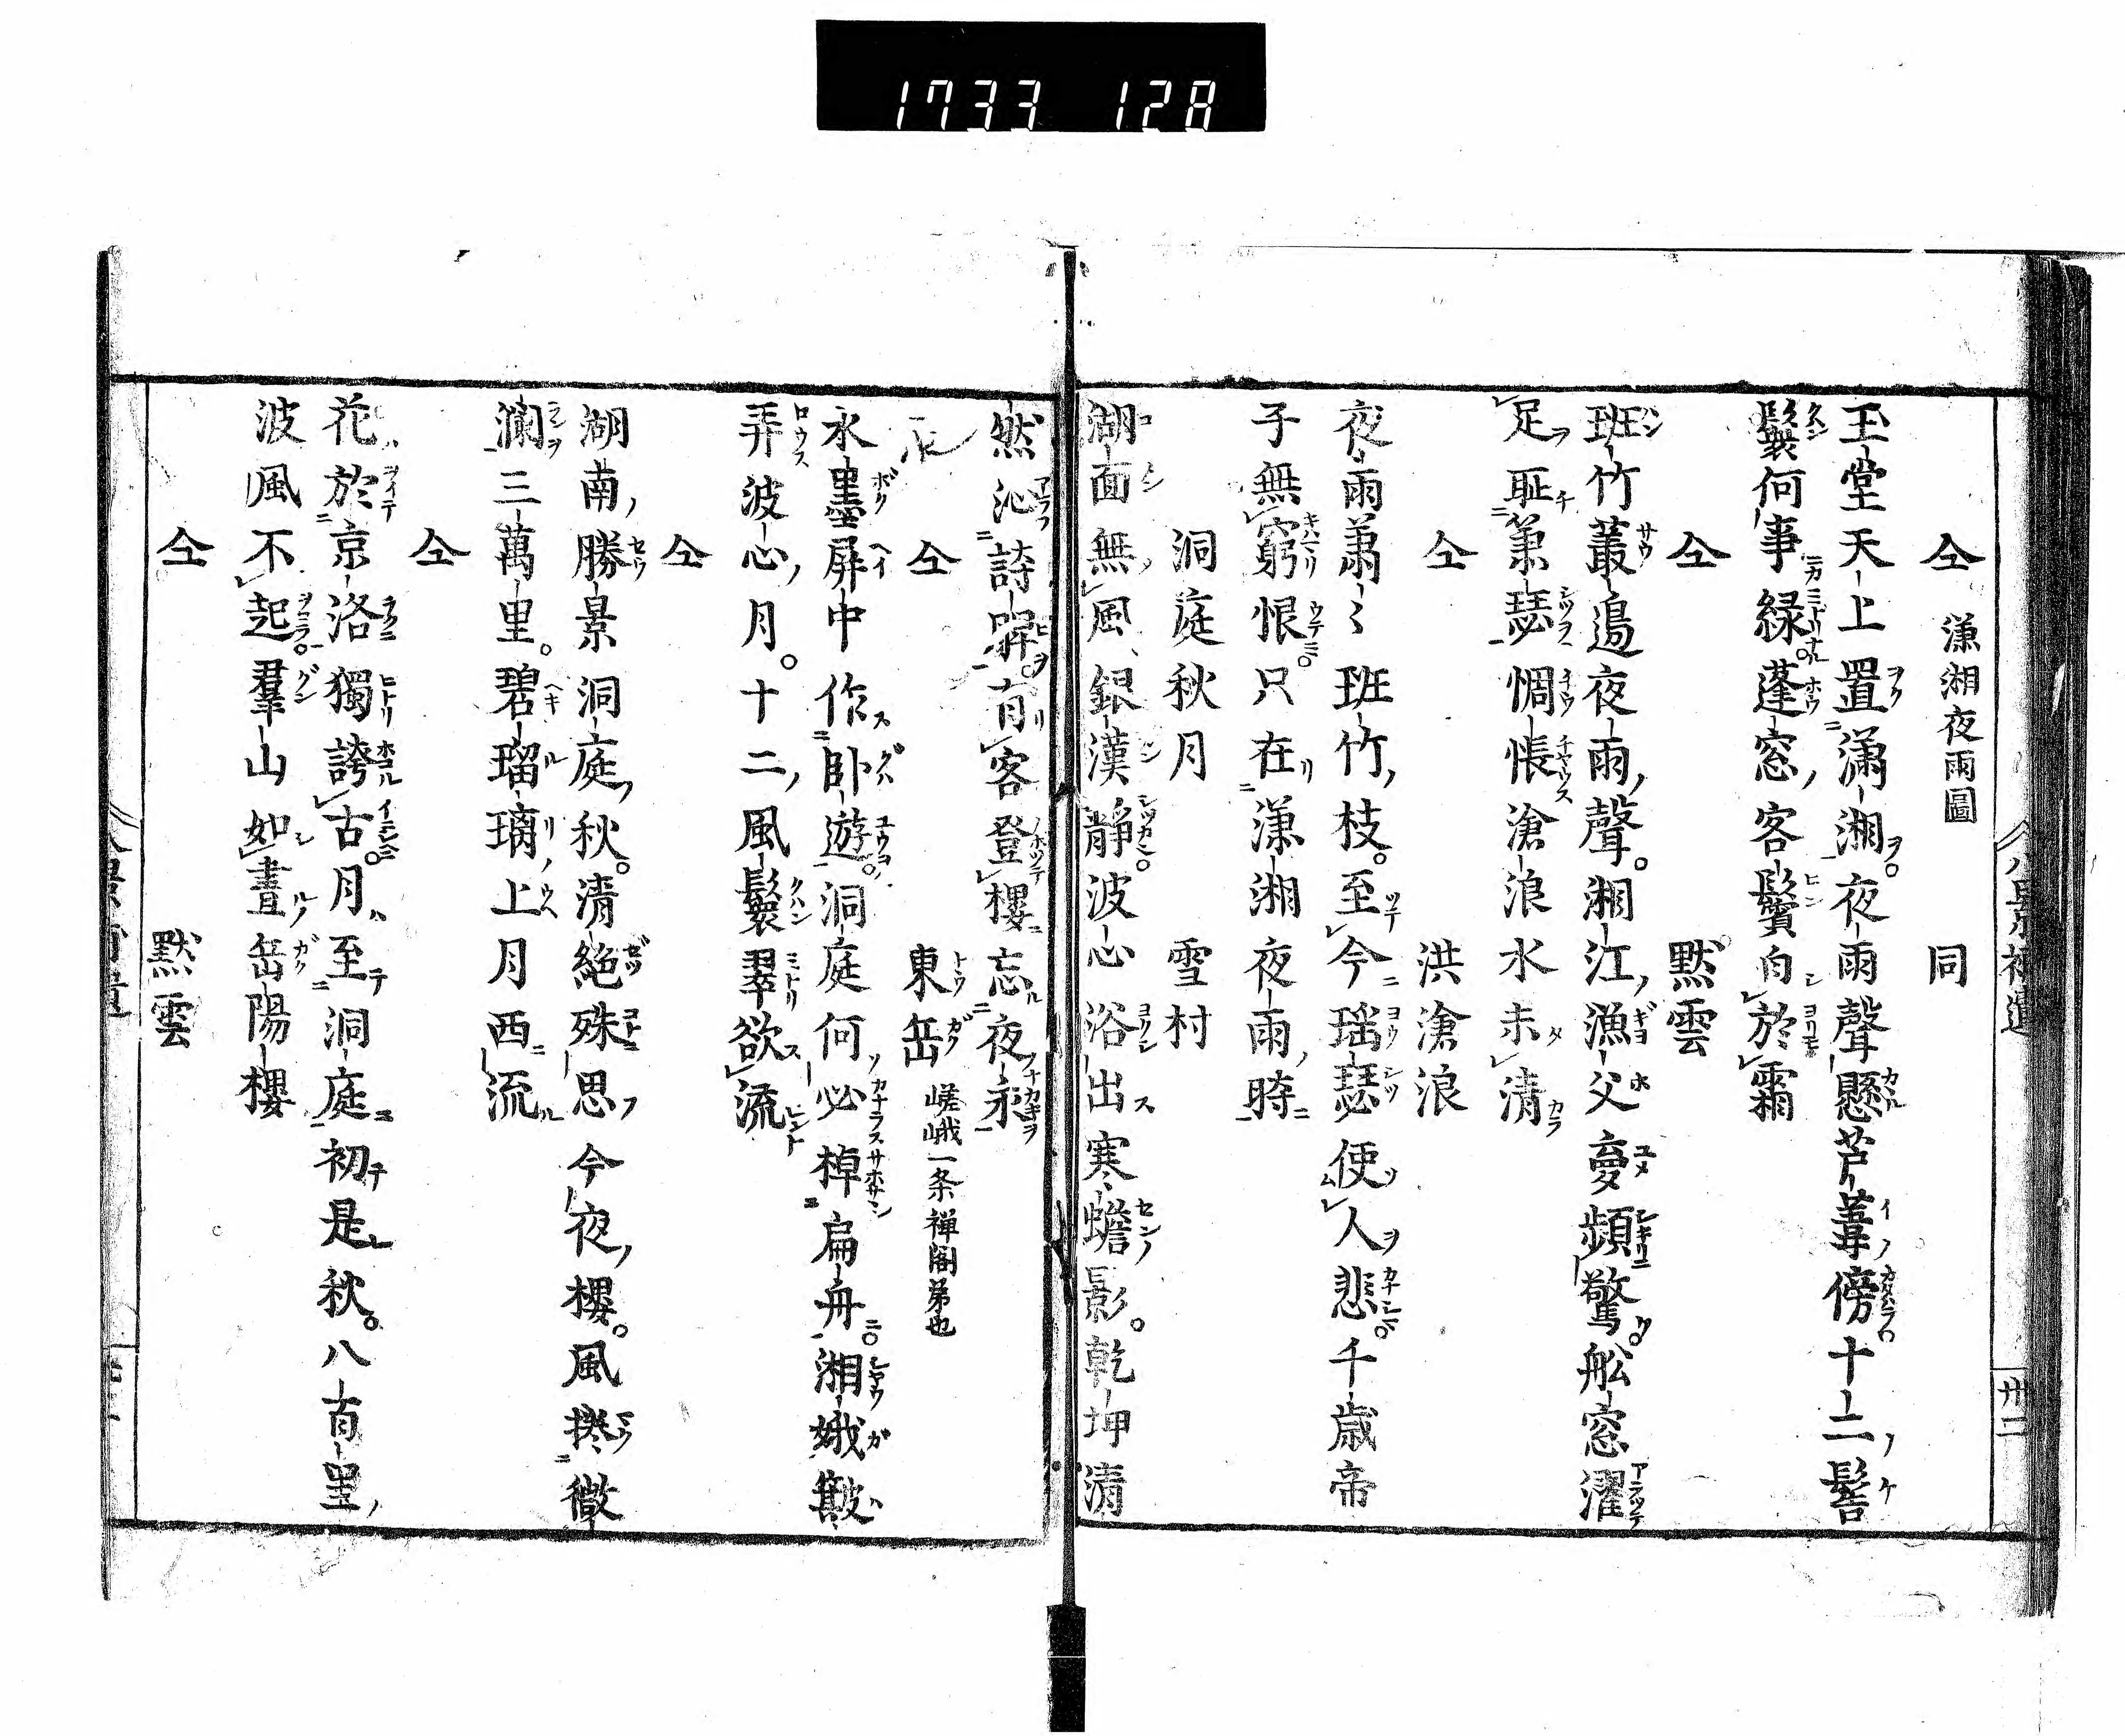 1733 128
仝 瀟湘夜雨圖 同
玉堂天上置瀟湘夜雨聲懸芦葦傍十二髻
鬟何事緑蓬窓客鬢白於霜
仝 黙雲
班竹叢邉夜雨聲湘江漁父夢頻驚舩窓濯
足耻兼瑟惆悵滄浪水未清
仝 洪滄浪
夜雨萧〻班竹枝至今瑶瑟使人悲千歳帝
子無窮恨只在瀟湘夜雨時
洞庭秋月 雪村
湖面無風銀漢静波心浴出寒蟾影乾坤清
然沁詩脾有客登樓忘夜永
仝 東岳 嵯峨一条禅閤弟也
水墨屏中作卧遊洞庭何必棹扁舟湘娥皺
弄波心月十二風鬟翠欲流
仝
湖南勝景洞庭秋清絶殊思今夜樓風撚微
瀾三萬里碧瑠璃上月西流
仝
花於京洛獨誇古月至洞庭初是秋八百里
波風不起羣山如晝岳陽樓
仝 黙雲